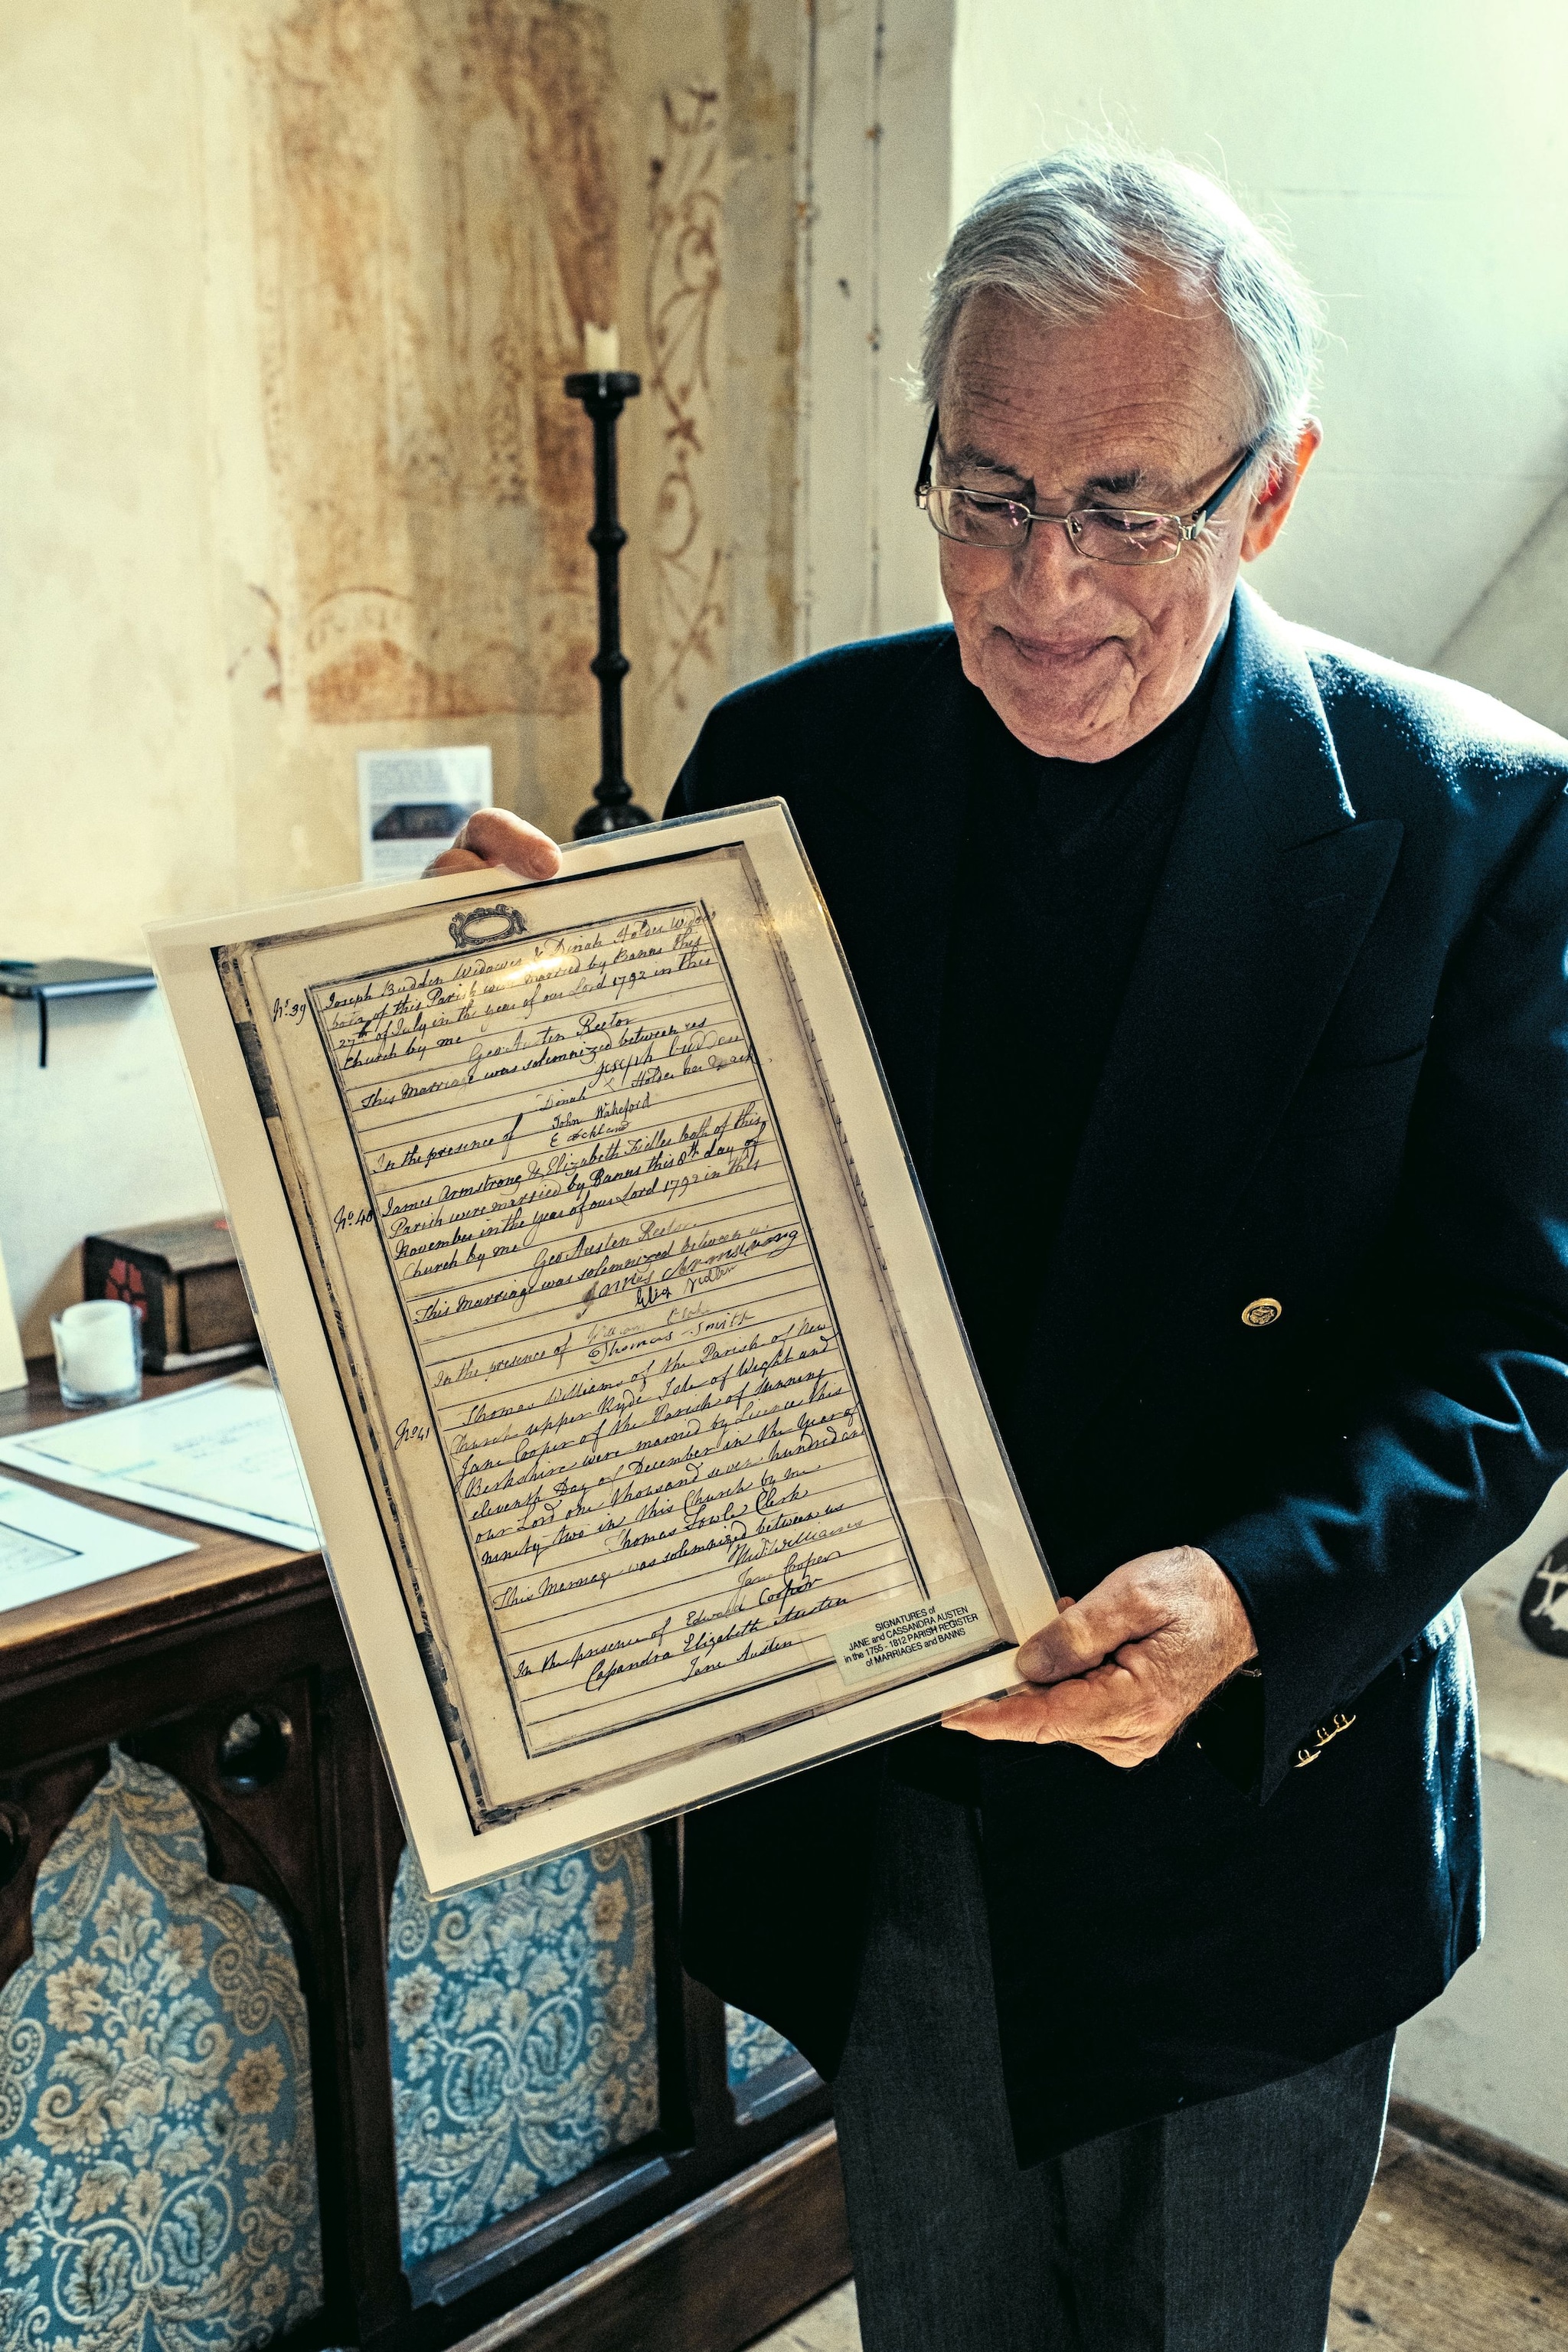 No: 39
Joseph Budden Widower & Dinah Holder Widow
both of this Parish were married by Banns this
27th of July in the year of our Lord 1792 in this
Church by me
Geo Austen Rector
This Marriage was solemnized between us
Joseph budden
Dinah X Holder her Mark
In the presence of John Wakeford
No: 40
James Armstrong & Elizabeth Fidler both of this
Parish were married by Banns this 8th day of
November in the year of our Lord 1792 in this
Church by me
Geo Austen Rector
This Marriage was solemnized between us
James Armstrong
Eliz Fidler
In the presence of William
Thomas Smith
No 41
Thomas Williams of the Parish of New
Church upper Ryde Isle of Wight and
Jane Cooper of the Parish of
Berkshire were married by Licence this
eleventh Day of December in the Year of
our Lord one thousand seven hundred and
ninety two in this Church by me
Thomas Fowle Clerk
This Marriage was solemnized between us
Thos: Williams
Jane Cooper
In the presence of Edward Cooper
Cassandra Elizabeth Austen
Jane Austen
SIGNATURES of
JANE and CASSANDRA AUSTEN
in the 1755 - 1812 PARISH REGISTER
of MARRIAGES and BANNS